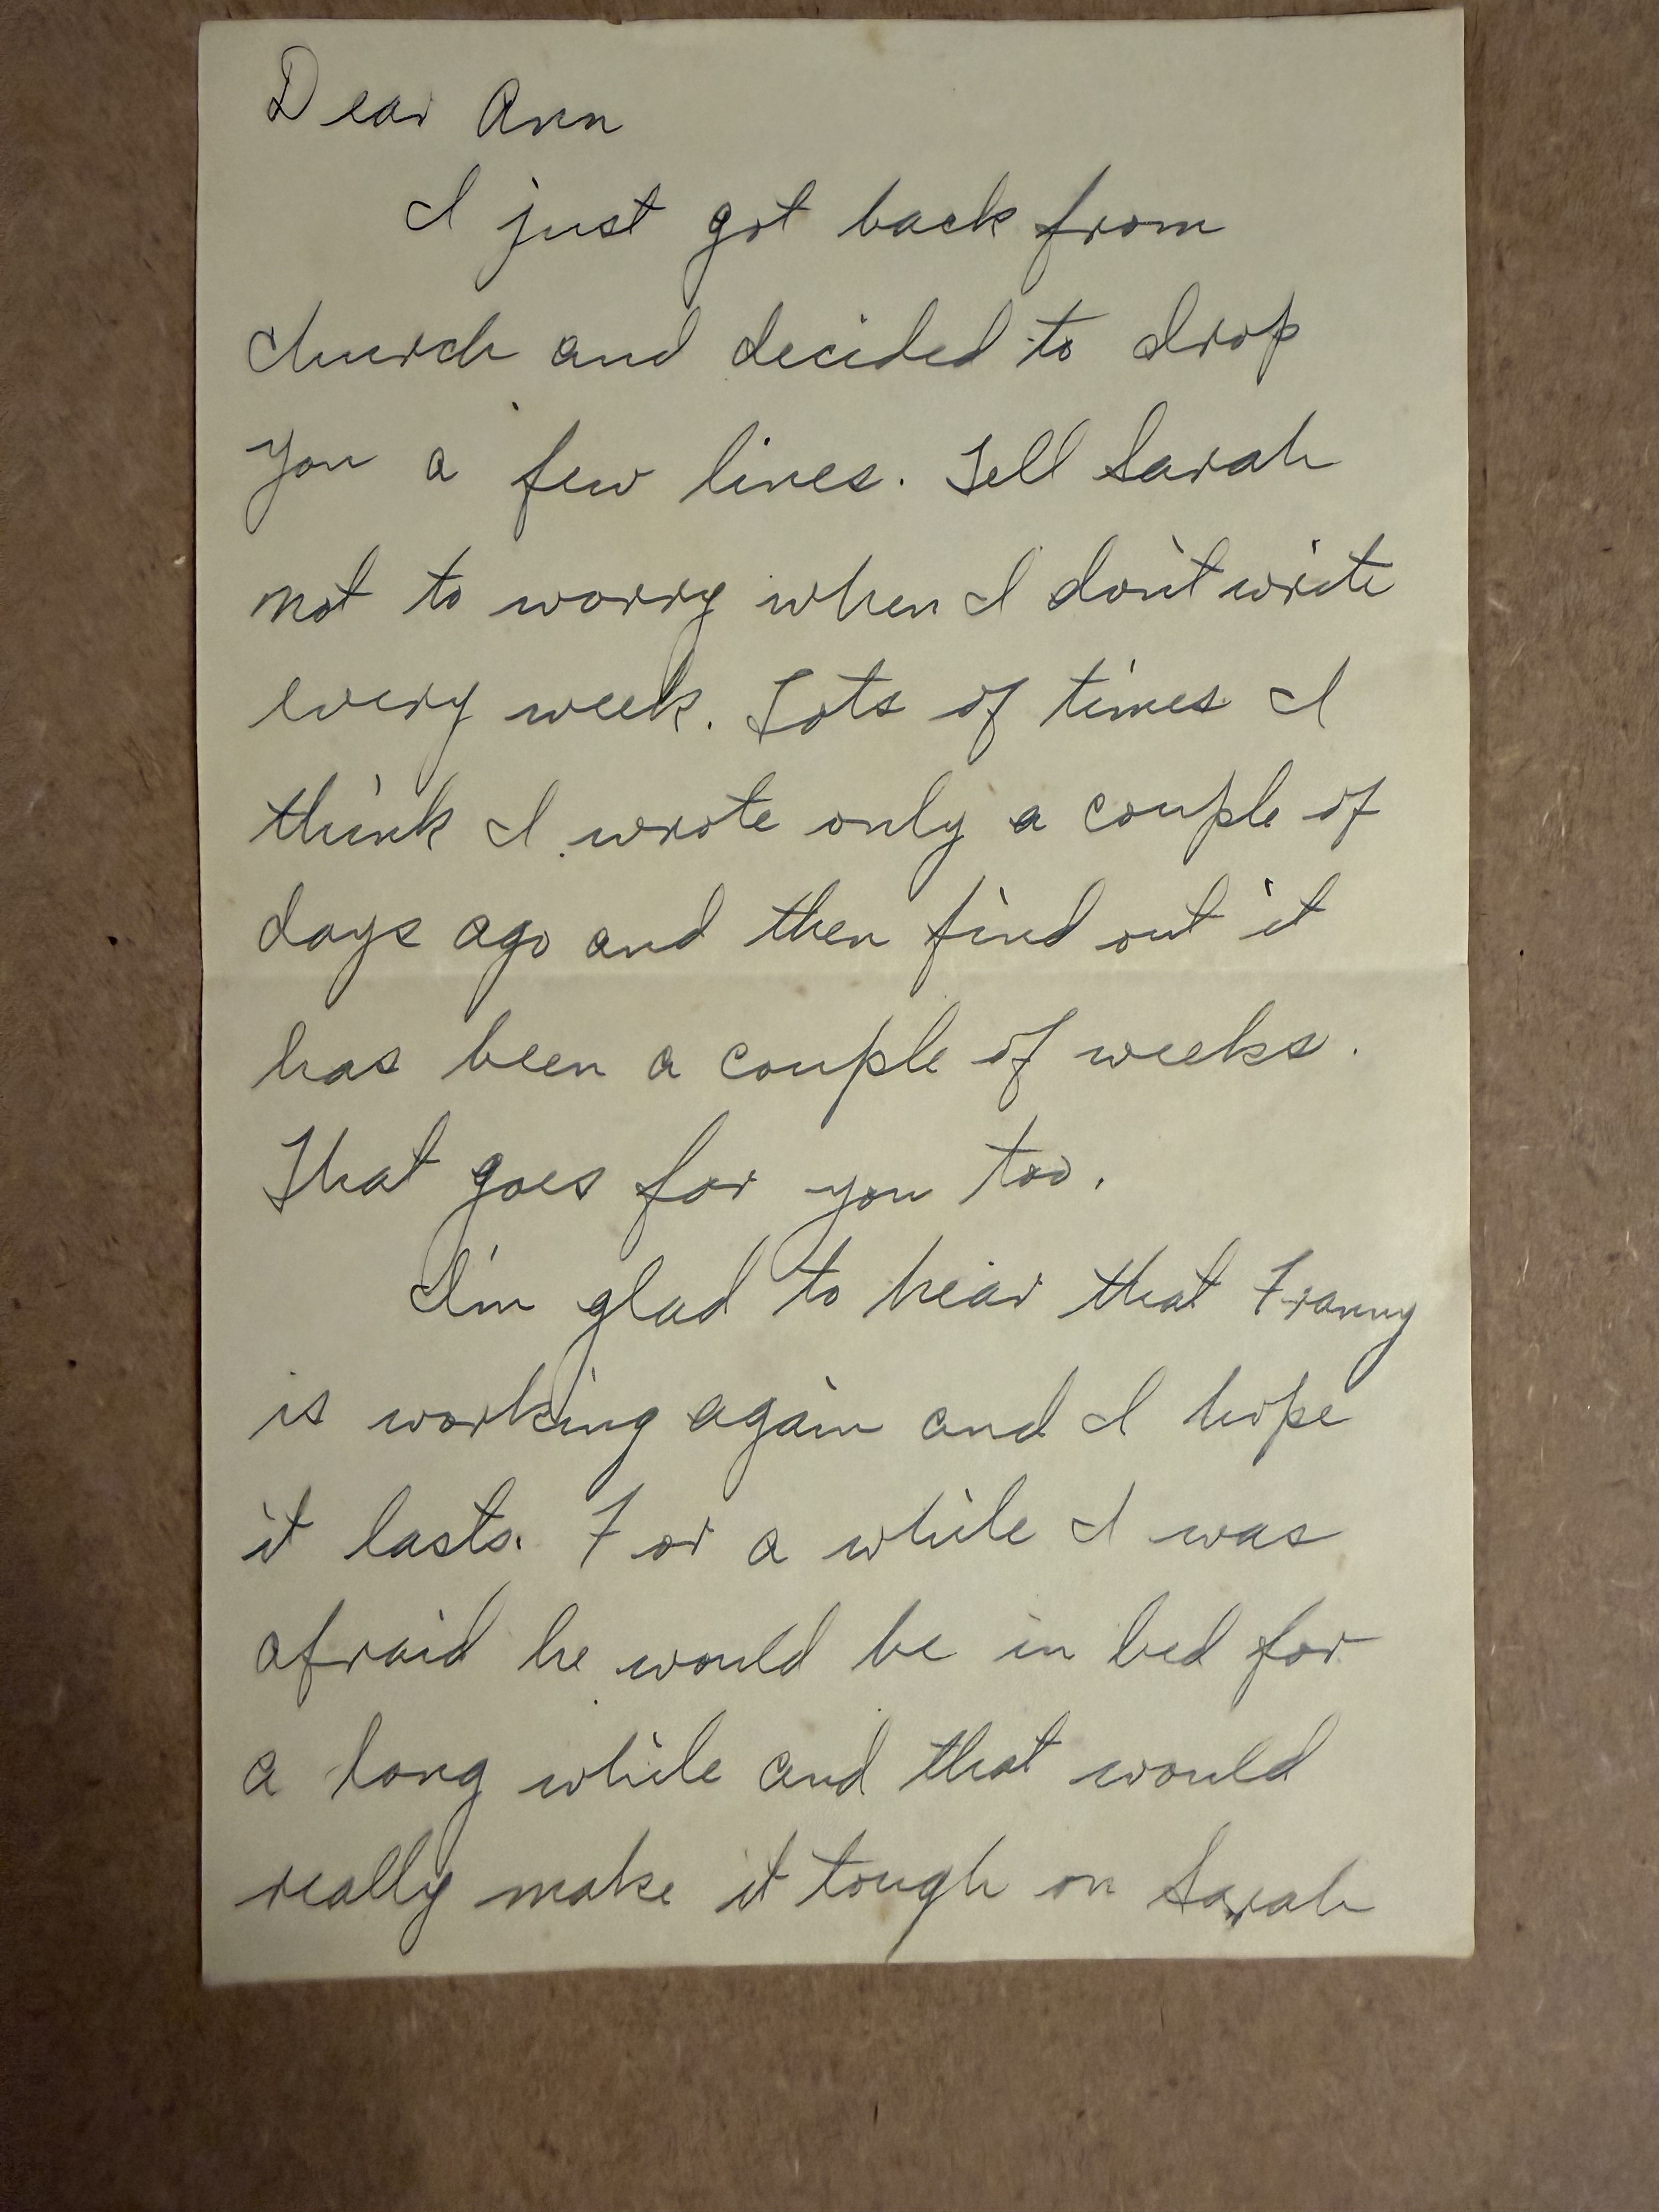 Dear Ann
I just got back from
church and decided to drop
you a few lines. Tell Sarah
not to worry when I don't write
every week. Lots of times I
think I wrote only a couple of
days ago and then find out it
has been a couple of weeks.
That goes for you too.
I'm glad to hear that Franny
is working again and I hope
it lasts. For a while I was
afraid he would be in bed for
a long while and that would
really make it tough on Sarah